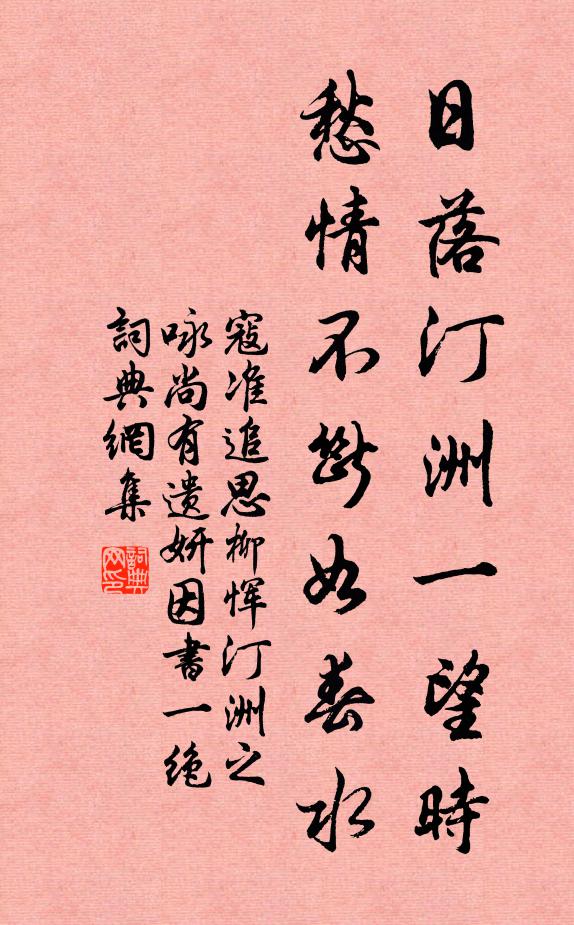 日落汀洲一望時
愁情不斷如春水
寇准追思柳惲汀洲之
咏尚有遺妍因書一绝
詞典網集
詞典网印